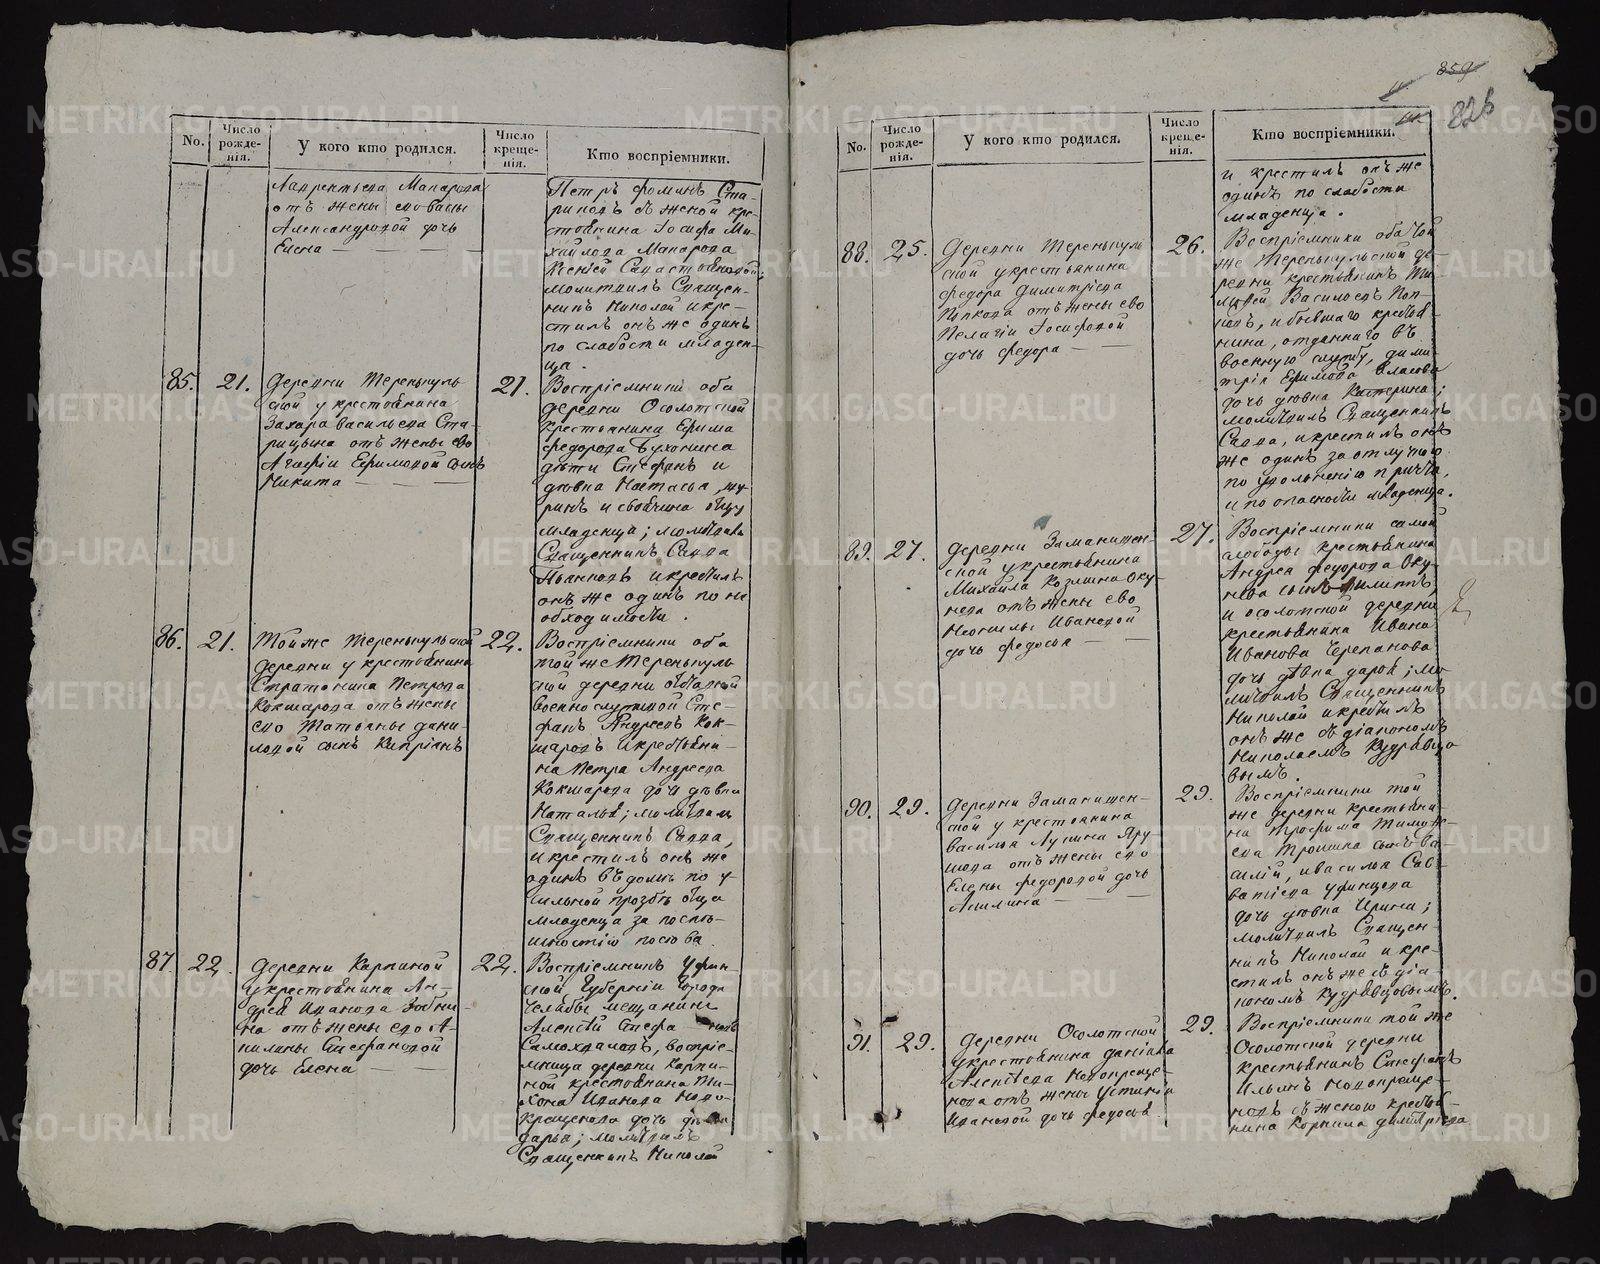 859
826
No.
Число рожде-нія.
У кого кто родился.
Число креще-нія.
Кто воспріемники.
Лаврентьева Макарова
отъ жены его Васы
Александровой дочь
Елена
Петръ Фоминъ Ста-
рицовъ съ женой кре-
стьянина Іосифа Ми-
хайлова Макарова
Ксеніей Савастьяновой;
молитвилъ Священ-
никъ Николай и кре-
стилъ онъ же одинъ
по слабости младен-
ца.
85. 21.
Деревни Теренькуль
ской у крестьянина
Захара Васильева Ста-
рицына отъ жены его
Агафіи Ефимовой сынъ
Никита
21.
Воспріемники оба
деревни Осолотской
крестьянина Ефима
Федорова
дѣти Стефанъ и
дѣвка Настасья,
младенца; молитвилъ
Священникъ Савва
и крестилъ
онъ же одинъ по не
обходимости.
86. 21.
Той же Теренькульской
деревни у крестьянина
Стратоника Петрова
Кокшарова отъ жены
его Татьяны Дани-
ловой сынъ Кипріянъ
22.
Воспріемники оба
той же Теренькуль
ской деревни
военнослужащей Сте-
фанъ Андреевъ Кок-
шаровъ и крестьяни-
на Петра Андреева
Кокшарова дочь дѣвка
Наталья; молитвилъ
Священникъ Савва,
и крестилъ онъ же
одинъ въ домѣ по у-
сильной прозбѣ отца
младенца за поспѣ-
шностію
87. 22.
Деревни Карпиной
у крестьянина Ан-
дрея Иванова
на отъ жены его А-
килины Стефановой
дочь Елена
22.
Воспріемникъ Уфим-
ской Губерніи города
Челябы мещанинъ
Алексѣй
Самохваловъ, воспріе-
мница деревни Карпи-
ной крестьянина Ти-
хона Иванова Ново-
крещенова дочь
Дарья; молитвилъ
Священникъ Николай
No.
Число рожде-нія.
У кого кто родился.
Число креще-нія.
Кто воспріемники.
и крестилъ онъ же
одинъ по слабости
младенца.
88. 25.
Деревни Теренькуль
ской у крестьянина
Федора Димитріева
Попкова отъ жены его
Пелагіи Іосифовой
дочь Федора
26.
Воспріемники оба той
же Теренькульской де-
ревни крестьянинъ Ти-
мофей Васильевъ Поп-
ковъ, и бывшаго крестья-
нина, отданнаго въ
военную службу, Дими-
трія Ефимова Власова
дочь дѣвка Катерина;
молитвилъ Священникъ
Савва, и крестилъ онъ
же одинъ за отлучкою
по увольненію причта,
и по опасности младенца.
89. 27.
Деревни Заманишен-
ской у крестьянина
Михайла Козмина Оку-
нева отъ жены его
Неонилы Ивановой
дочь Федосья
27.
Воспріемники самой
слободы крестьянина
Андрея Федорова Оку-
нева сынъ Филиппъ
и Осолотской деревни
крестьянина Ивана
Иванова Черепанова
дочь дѣвка Дарья; мо-
литвилъ Священникъ
Николай и крестилъ
онъ же съ діакономъ
Николаемъ Кудрявцо
вымъ.
90. 29.
Деревни Заманишен-
ской у крестьянина
Василья Лукина Яру-
шева отъ жены его
Елены Федоровой дочь
Акилина
29.
Воспріемники той
же деревни крестьяни-
на Трофима Тимофе-
ева сынъ Ва-
силій, и Василья Сав-
ватіева Уфинцева
дочь дѣвка Ирина;
молитвилъ Священ-
никъ Николай и кре-
стилъ онъ же съ діа
кономъ Кудрявцовымъ.
91. 29.
Деревни Осолотской
у крестьянина Даніила
Алексѣева Новокреще-
нова отъ жены Устиніи
Ивановой дочь Федосья
29.
Воспріемники той же
Осолотской деревни
крестьянинъ Стефанъ
Ильинъ Новокреще-
новъ съ женою крестья-
нина Корнила Димитріева